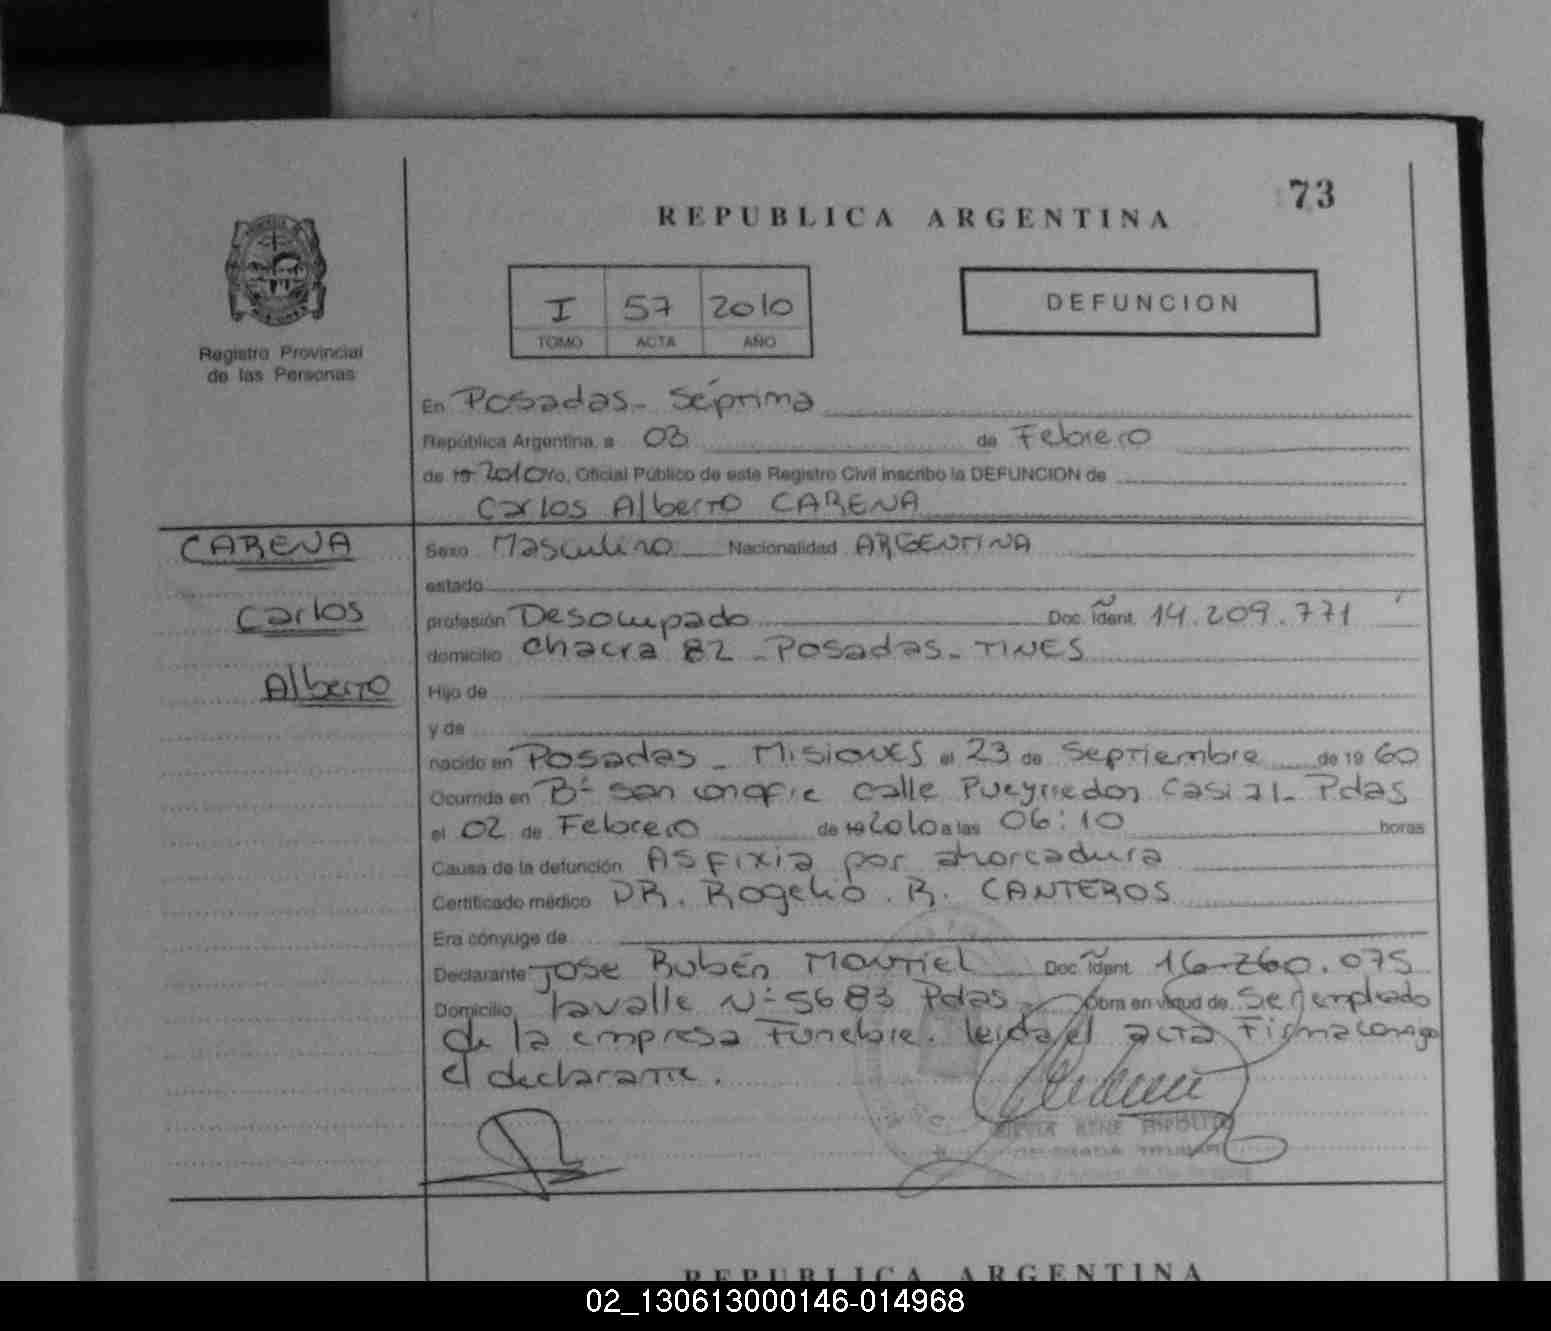 73
REPUBLICA ARGENTINA
I 57 2010
TOMO ACTA AÑO
DEFUNCION
Registro Provincial
de las Personas
En Posadas - Séptima
República Argentina, a 03 de Febrero
de 19 2010 Yo, Oficial Público de este Registro Civil inscribo la DEFUNCION de
Carlos Alberto CARENA
CARENA
Carlos
Alberto
Sexo Masculino Nacionalidad ARGENTINA
estado
profesión Desocupado Doc. Ident. 14.209.771
domicilio Chacra 82 - Posadas -
Hijo de
y de
nacido en Posadas - Misiones el 23 de Septiembre de 19 60
Ocurrida en Bº San calle Pueyrredon Pdas
el 02 de Febrero de 19 2010 a las 06:10 horas
Causa de la defunción Asfixia por ahorcadura
Certificado médico DR. Rogelio R. CANTEROS
Era cónyuge de
Declarante José Rubén Doc. Ident. 16.260.075
Domicilio Lavalle Nº 5683 Pdas - Obra en virtud de Ser empleado
de la empresa Funebre. leida el acta Firma conmigo
el declarante.
REPUBLICA ARGENTINA
02_130613000146-014968